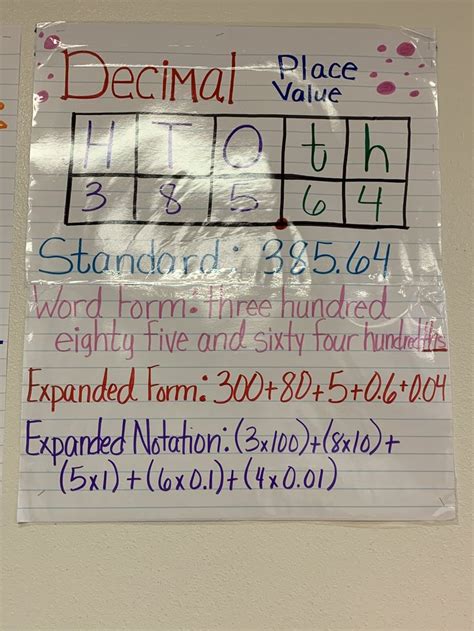 Decimal Place Value
H T O t h
3 8 5 . 6 4
Standard: 385.64
Word Form: three hundred
eighty five and sixty four hundredths
Expanded Form: 300+80+5+0.6+0.04
Expanded Notation: (3x100)+(8x10)+
(5x1)+(6x0.1)+(4x0.01)